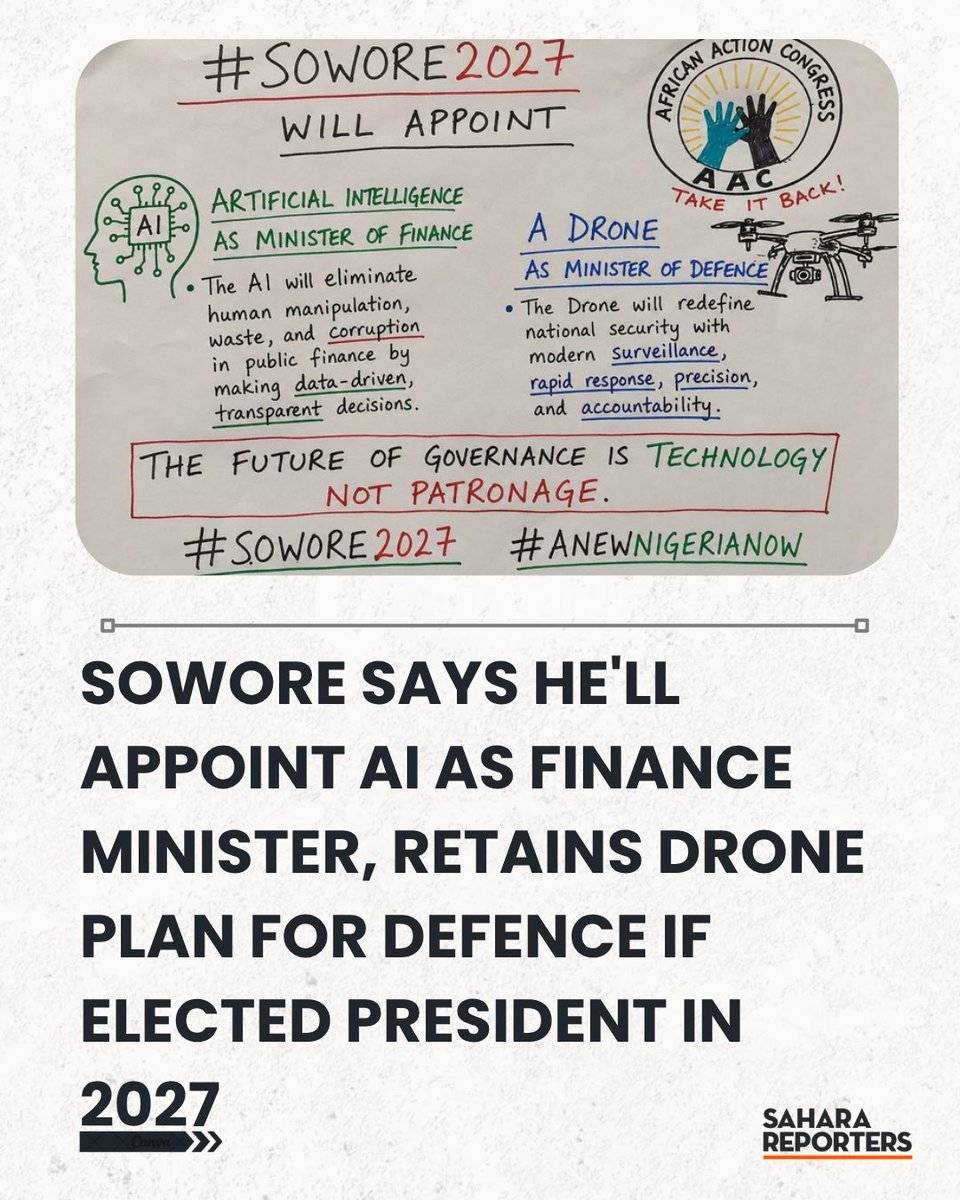 #SOWORE2027
WILL APPOINT
AFRICAN ACTION CONGRESS
AAC
TAKE IT BACK!
AI
ARTIFICIAL INTELLIGENCE
AS MINISTER OF FINANCE
• The AI will eliminate
human manipulation,
waste, and corruption
in public finance by
making data-driven,
transparent decisions.
A DRONE
AS MINISTER OF DEFENCE
• The Drone will redefine
national security with
modern surveillance,
rapid response, precision,
and accountability.
THE FUTURE OF GOVERNANCE IS TECHNOLOGY
NOT PATRONAGE.
#SOWORE2027 #ANEWNIGERIANOW
SOWORE SAYS HE'LL
APPOINT AI AS FINANCE
MINISTER, RETAINS DRONE
PLAN FOR DEFENCE IF
ELECTED PRESIDENT IN
2027
Canva
SAHARA
REPORTERS